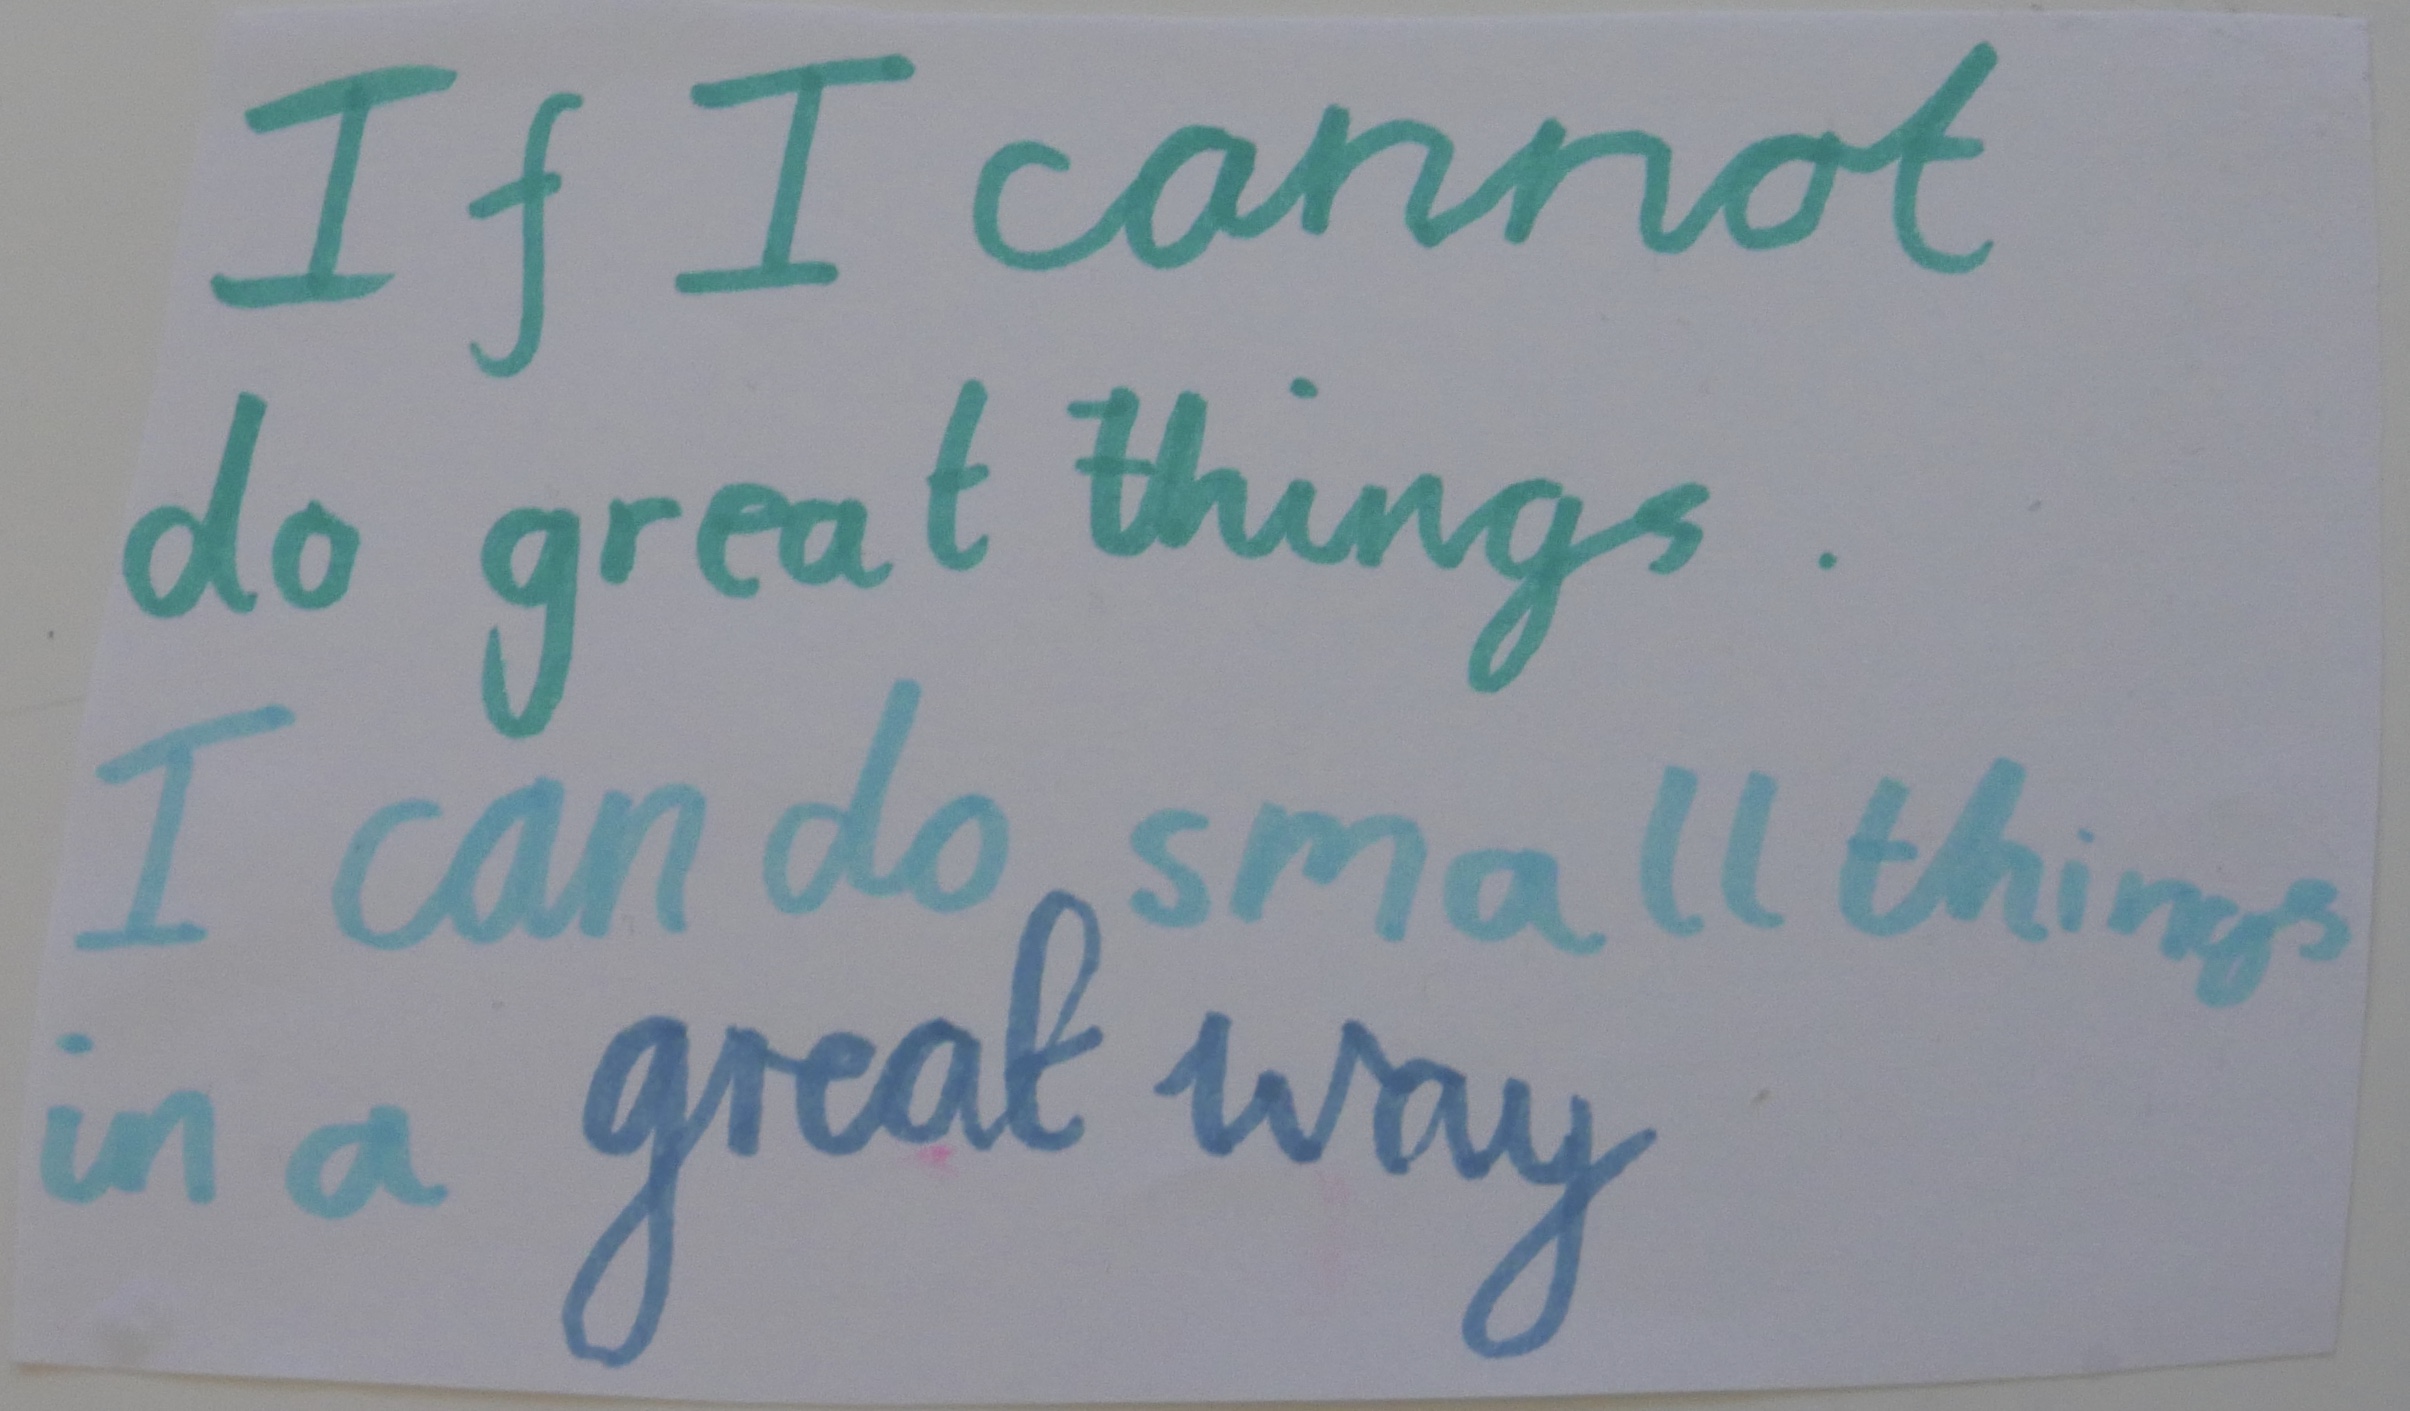 If I cannot
do great things.
I can do small things
in a great way